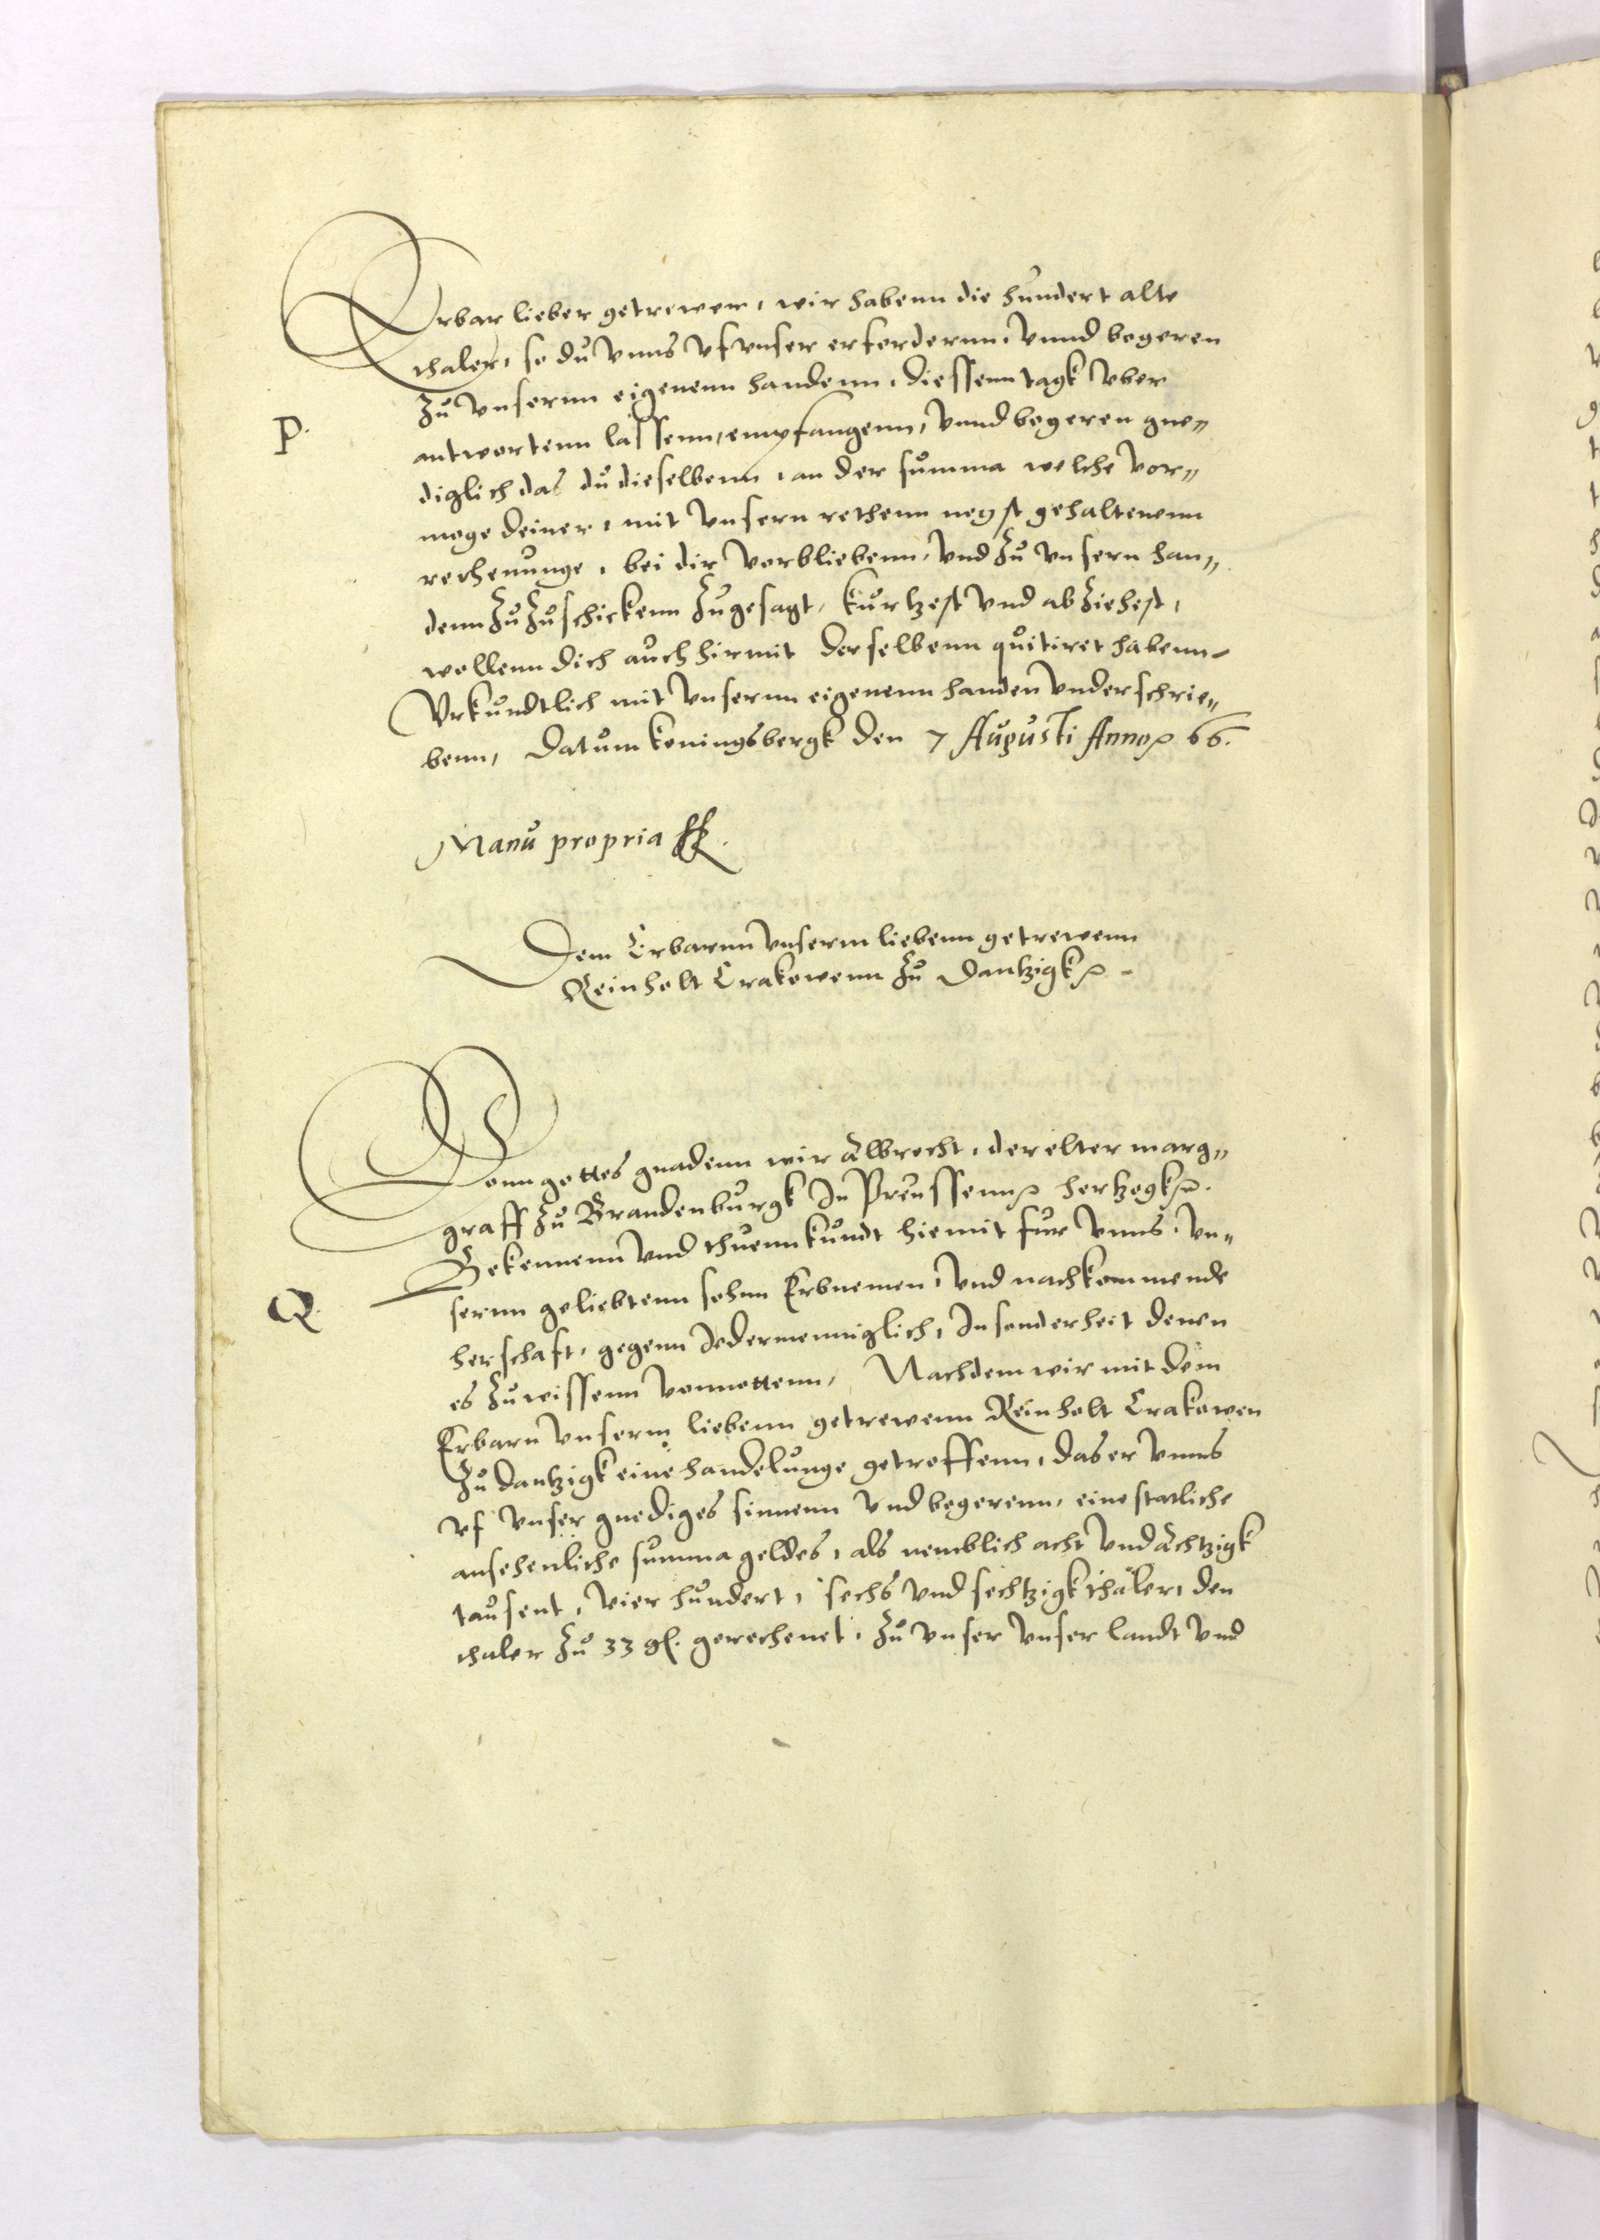 Erbar lieber getrewer, wir habenn die hundert alte
thaler, so du vnns vf vnser erfordernn, vnnd begeren
zu vnsernn eigenenn handenn, diessenn tagk vber
P.
antwortenn lassenn, empfangenn, vnnd begeren gne„
diglich das du dieselbenn, an der summa welche vor„
moge deiner, mit vnsern rethenn negst gehaltenenn
rechenunge, bei dir verbliebenn, vnd zu vnsern han„
denn zuzuschickenn zugesagt, kurtzest vnd abziehest,
wollenn dich auch hirmit derselbenn quitiret habenn
Vrkundtlich mit vnsernn eigenenn handen vnderschrie„
benn, Datum koningsbergk den 7 Augusti Anno 66.
Manu propria
Dem Erbarnn vnserm liebenn getrewenn
Reinholt Crakowenn zu Dantzigk
Vonn gottes gnadenn wir Albrecht, der elter marg„
graff zu Brandenburgk In Preussenn hertzogk
Bekennenn vnd thuenn kundt hiemit fur vnns, vn„
Q
sernn geliebtenn sohnn Erbnemen, vnd nachkommende
herschaft, gegenn Jedermenniglich, Insonderheit denen
es zuwissenn vonnottenn, Nachdem wir mit dem
Erbarn vnserm liebenn getrewenn Reinholt Crakowen
zu dantzigk eine handelunge getroffenn, das er vnns
vf vnser gnediges sinnenn vnd begerenn, eine statliche
ansehenliche summa geldes, als nemblich acht vnd achtzigk
tausent, vier hundert, sechs vnd sechtzigk thaler, den
thaler zu 33 gl. gerechenet, zu vnser vnser landt vnd